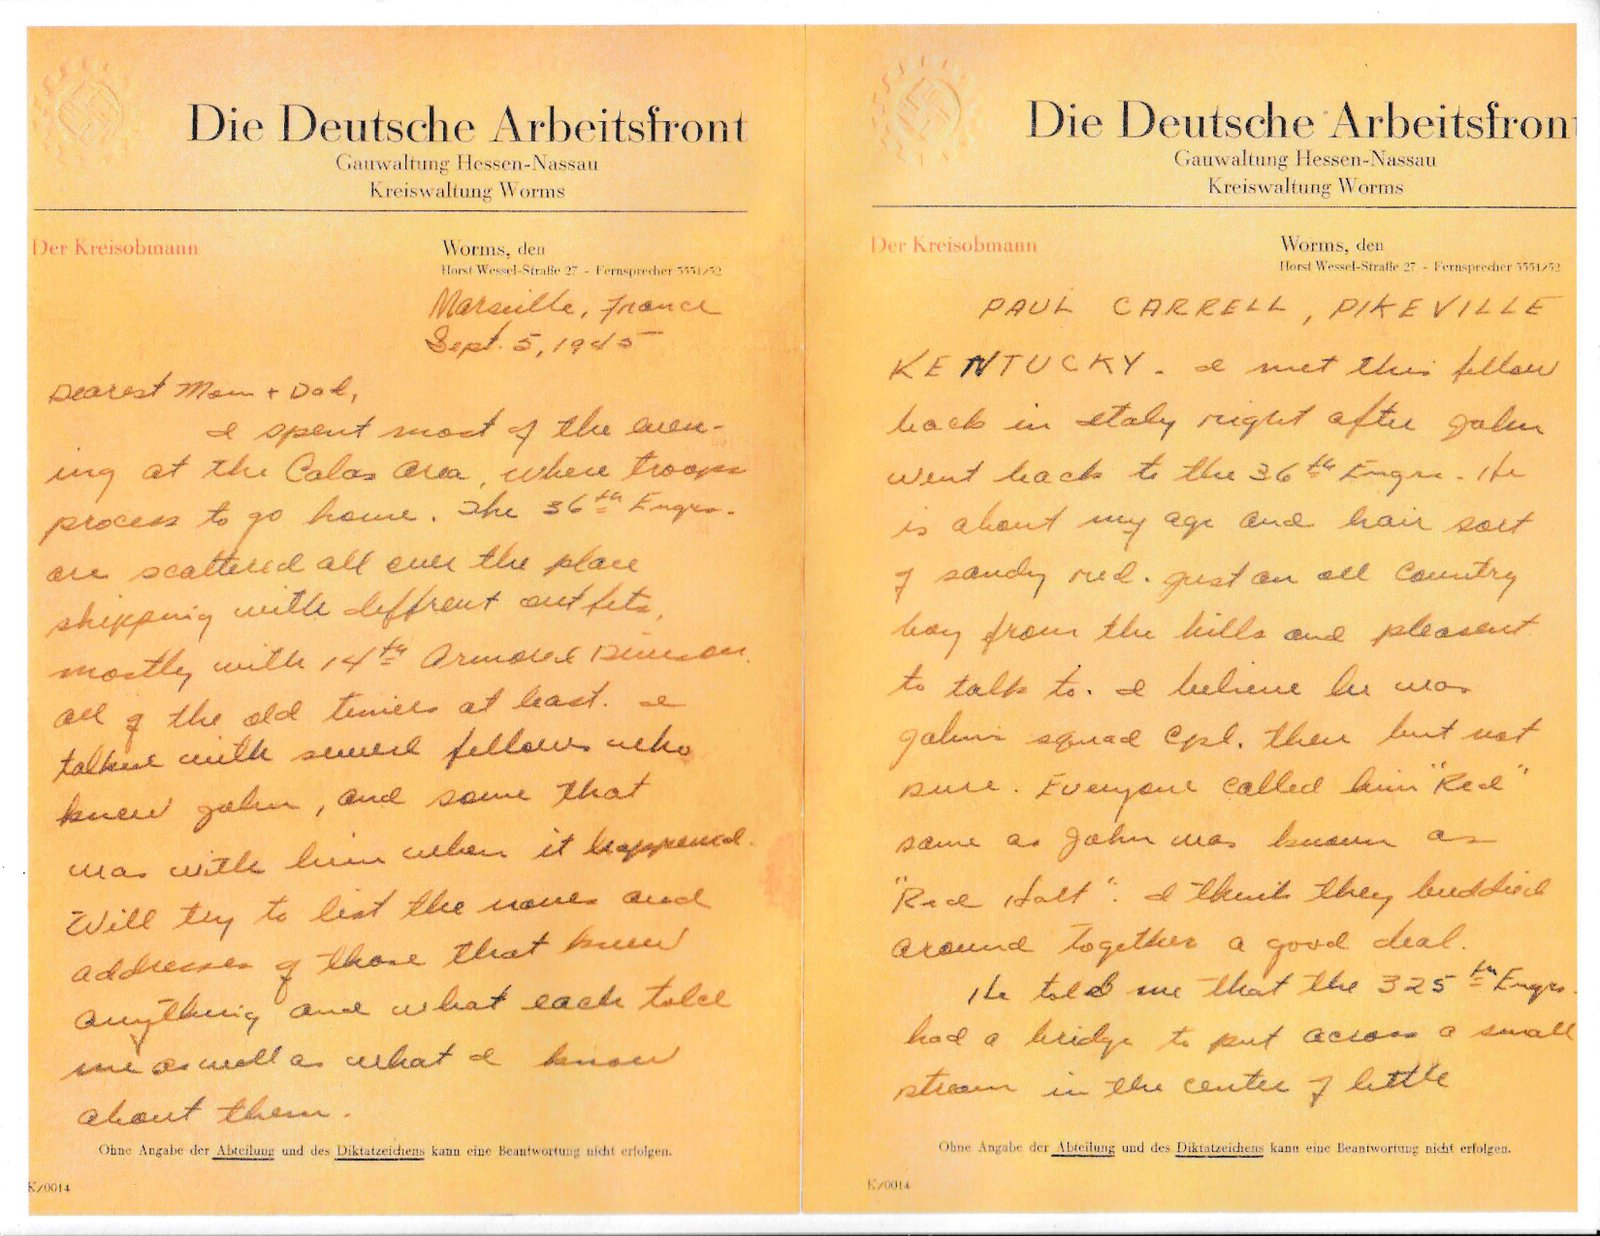 Die Deutsche Arbeitsfront
Gauwaltung Hessen-Nassau
Kreiswaltung Worms
Der Kreisobmann
Worms, den
Horst Wessel-Straße 27 - Fernsprecher 5551/52
Marseille, France
Sept. 5, 1945
Dearest Mom + Dad,
I spent most of the even-
ing at the Calas area, where troops
process to go home. The 36th Engrs.
are scattered all over the place
shipping with diffrent outfits,
mostly with 14th Armored Division.
all of the old timers at least. I
talked with several fellows who
knew John, and some that
was with him when it happened.
Will try to list the names and
addresses of those that knew
anything and what each told
me as well as what I know
about them.
Ohne Angabe der Abteilung und des Diktatzeichens kann eine Beantwortung nicht erfolgen.
K/0014
Die Deutsche Arbeitsfront
Gauwaltung Hessen-Nassau
Kreiswaltung Worms
Der Kreisobmann
Worms, den
Horst Wessel-Straße 27 - Fernsprecher 5551/52
PAUL CARRELL, PIKEVILLE
KENTUCKY. I met this fellow
back in Italy right after John
went back to the 36th Engrs. He
is about my age and hair sort
of sandy red. just an old country
boy from the hills and pleasent
to talk to. I believe he was
John's squad Cpl. then but not
sure. Everyone called him "Red"
same as John was known as
"Red Holt". I think they buddied
around together a good deal.
He told me that the 325th Engrs.
had a bridge to put across a small
stream in the center of little
Ohne Angabe der Abteilung und des Diktatzeichens kann eine Beantwortung nicht erfolgen.
K/0014